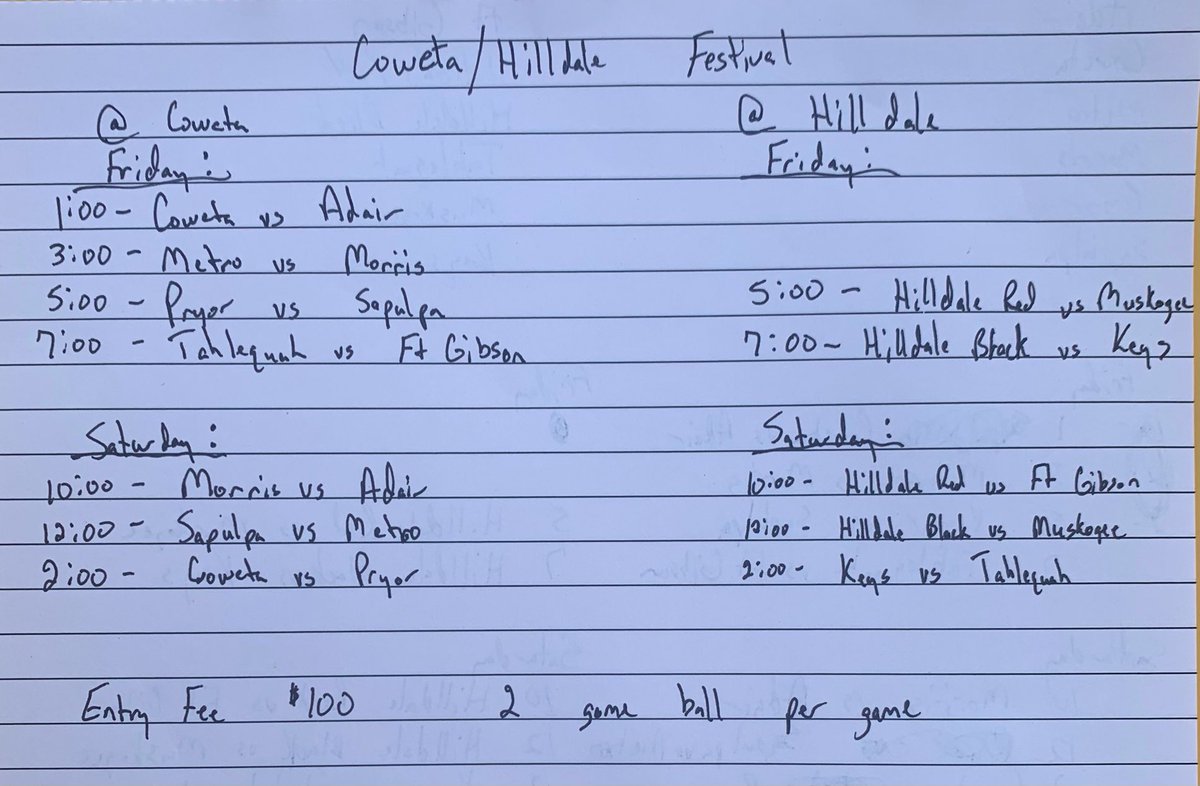 Coweta/Hilldale Festival
@ Coweta
Friday:
1:00 - Coweta vs Adair
3:00 - Metro vs Morris
5:00 - Pryor vs Sapulpa
7:00 - Tahlequah vs Ft Gibson
Saturday:
10:00 - Morris vs Adair
12:00 - Sapulpa vs Metro
2:00 - Coweta vs Pryor
@ Hilldale
Friday:
5:00 - Hilldale Red vs Muskogee
7:00 - Hilldale Black vs Keys
Saturday:
10:00 - Hilldale Red vs Ft Gibson
12:00 - Hilldale Black vs Muskogee
2:00 - Keys vs Tahlequah
Entry Fee $100 2 game ball per game